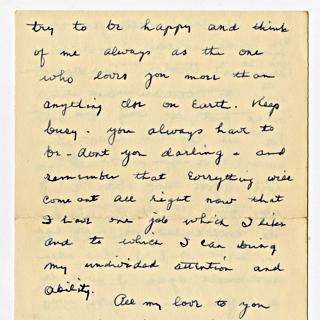 try to be happy and think
of me always as the one
who loves you more than
anything else on Earth. Keep
busy. you always have to
be - dont you darling - and
remember that Everything will
come out all right now that
I have one job which I like
and to which I can bring
my undivided attention and
ability.
All my love to you